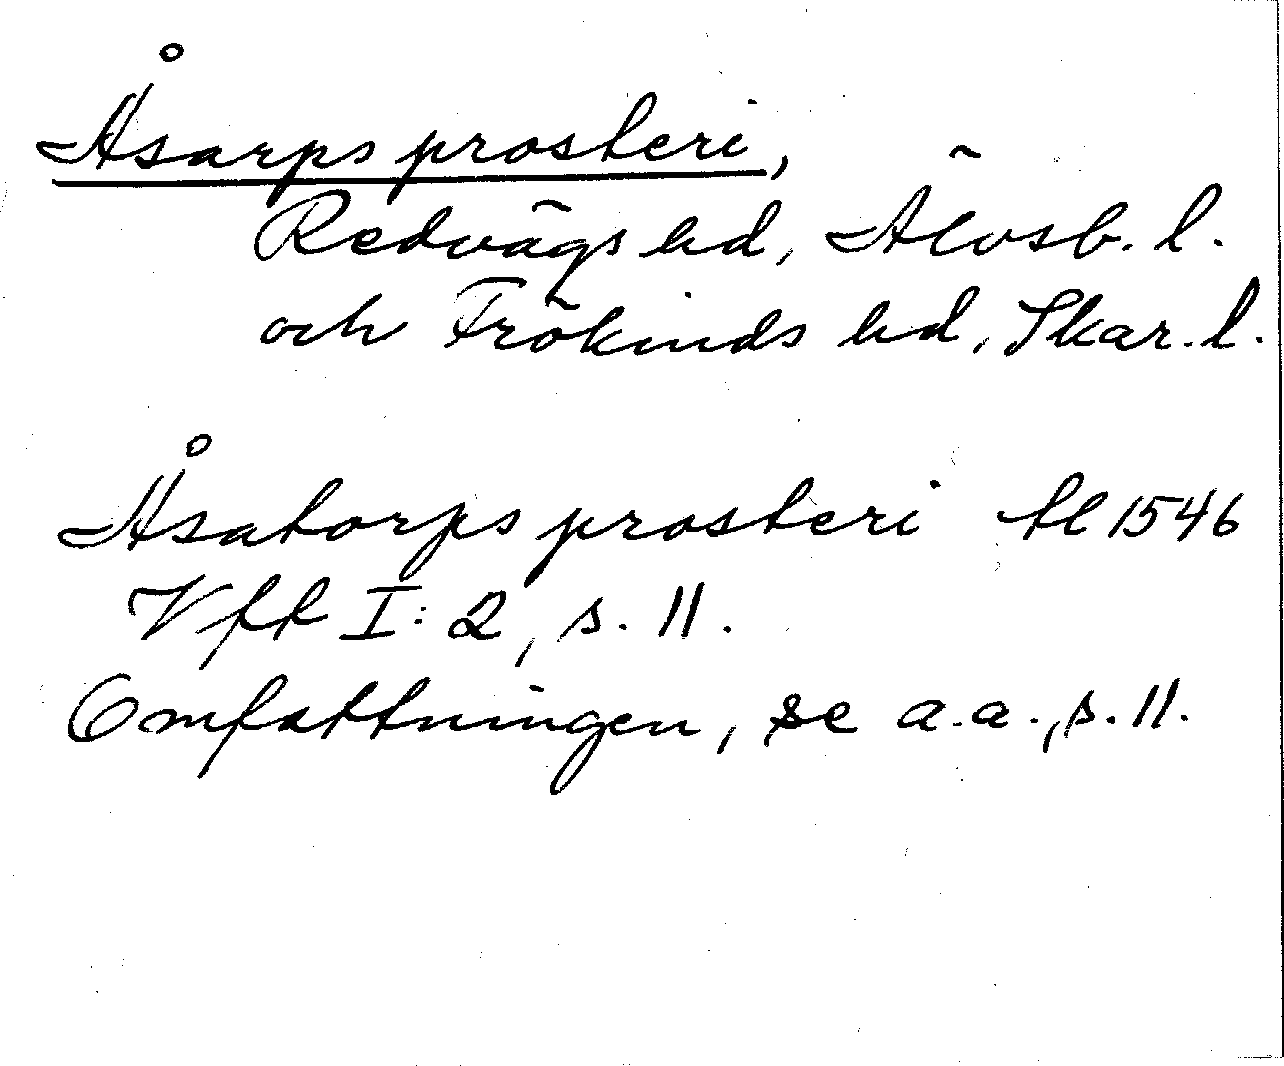 Åsarps prosteri,
Redvägs hd, Älvsb. l.
och Frökinds hd, Skar. l.
Åsatorps prosteri tl 1546
Vfft I: 2, s. 11.
Omfattningen, se a.a., s. 11.